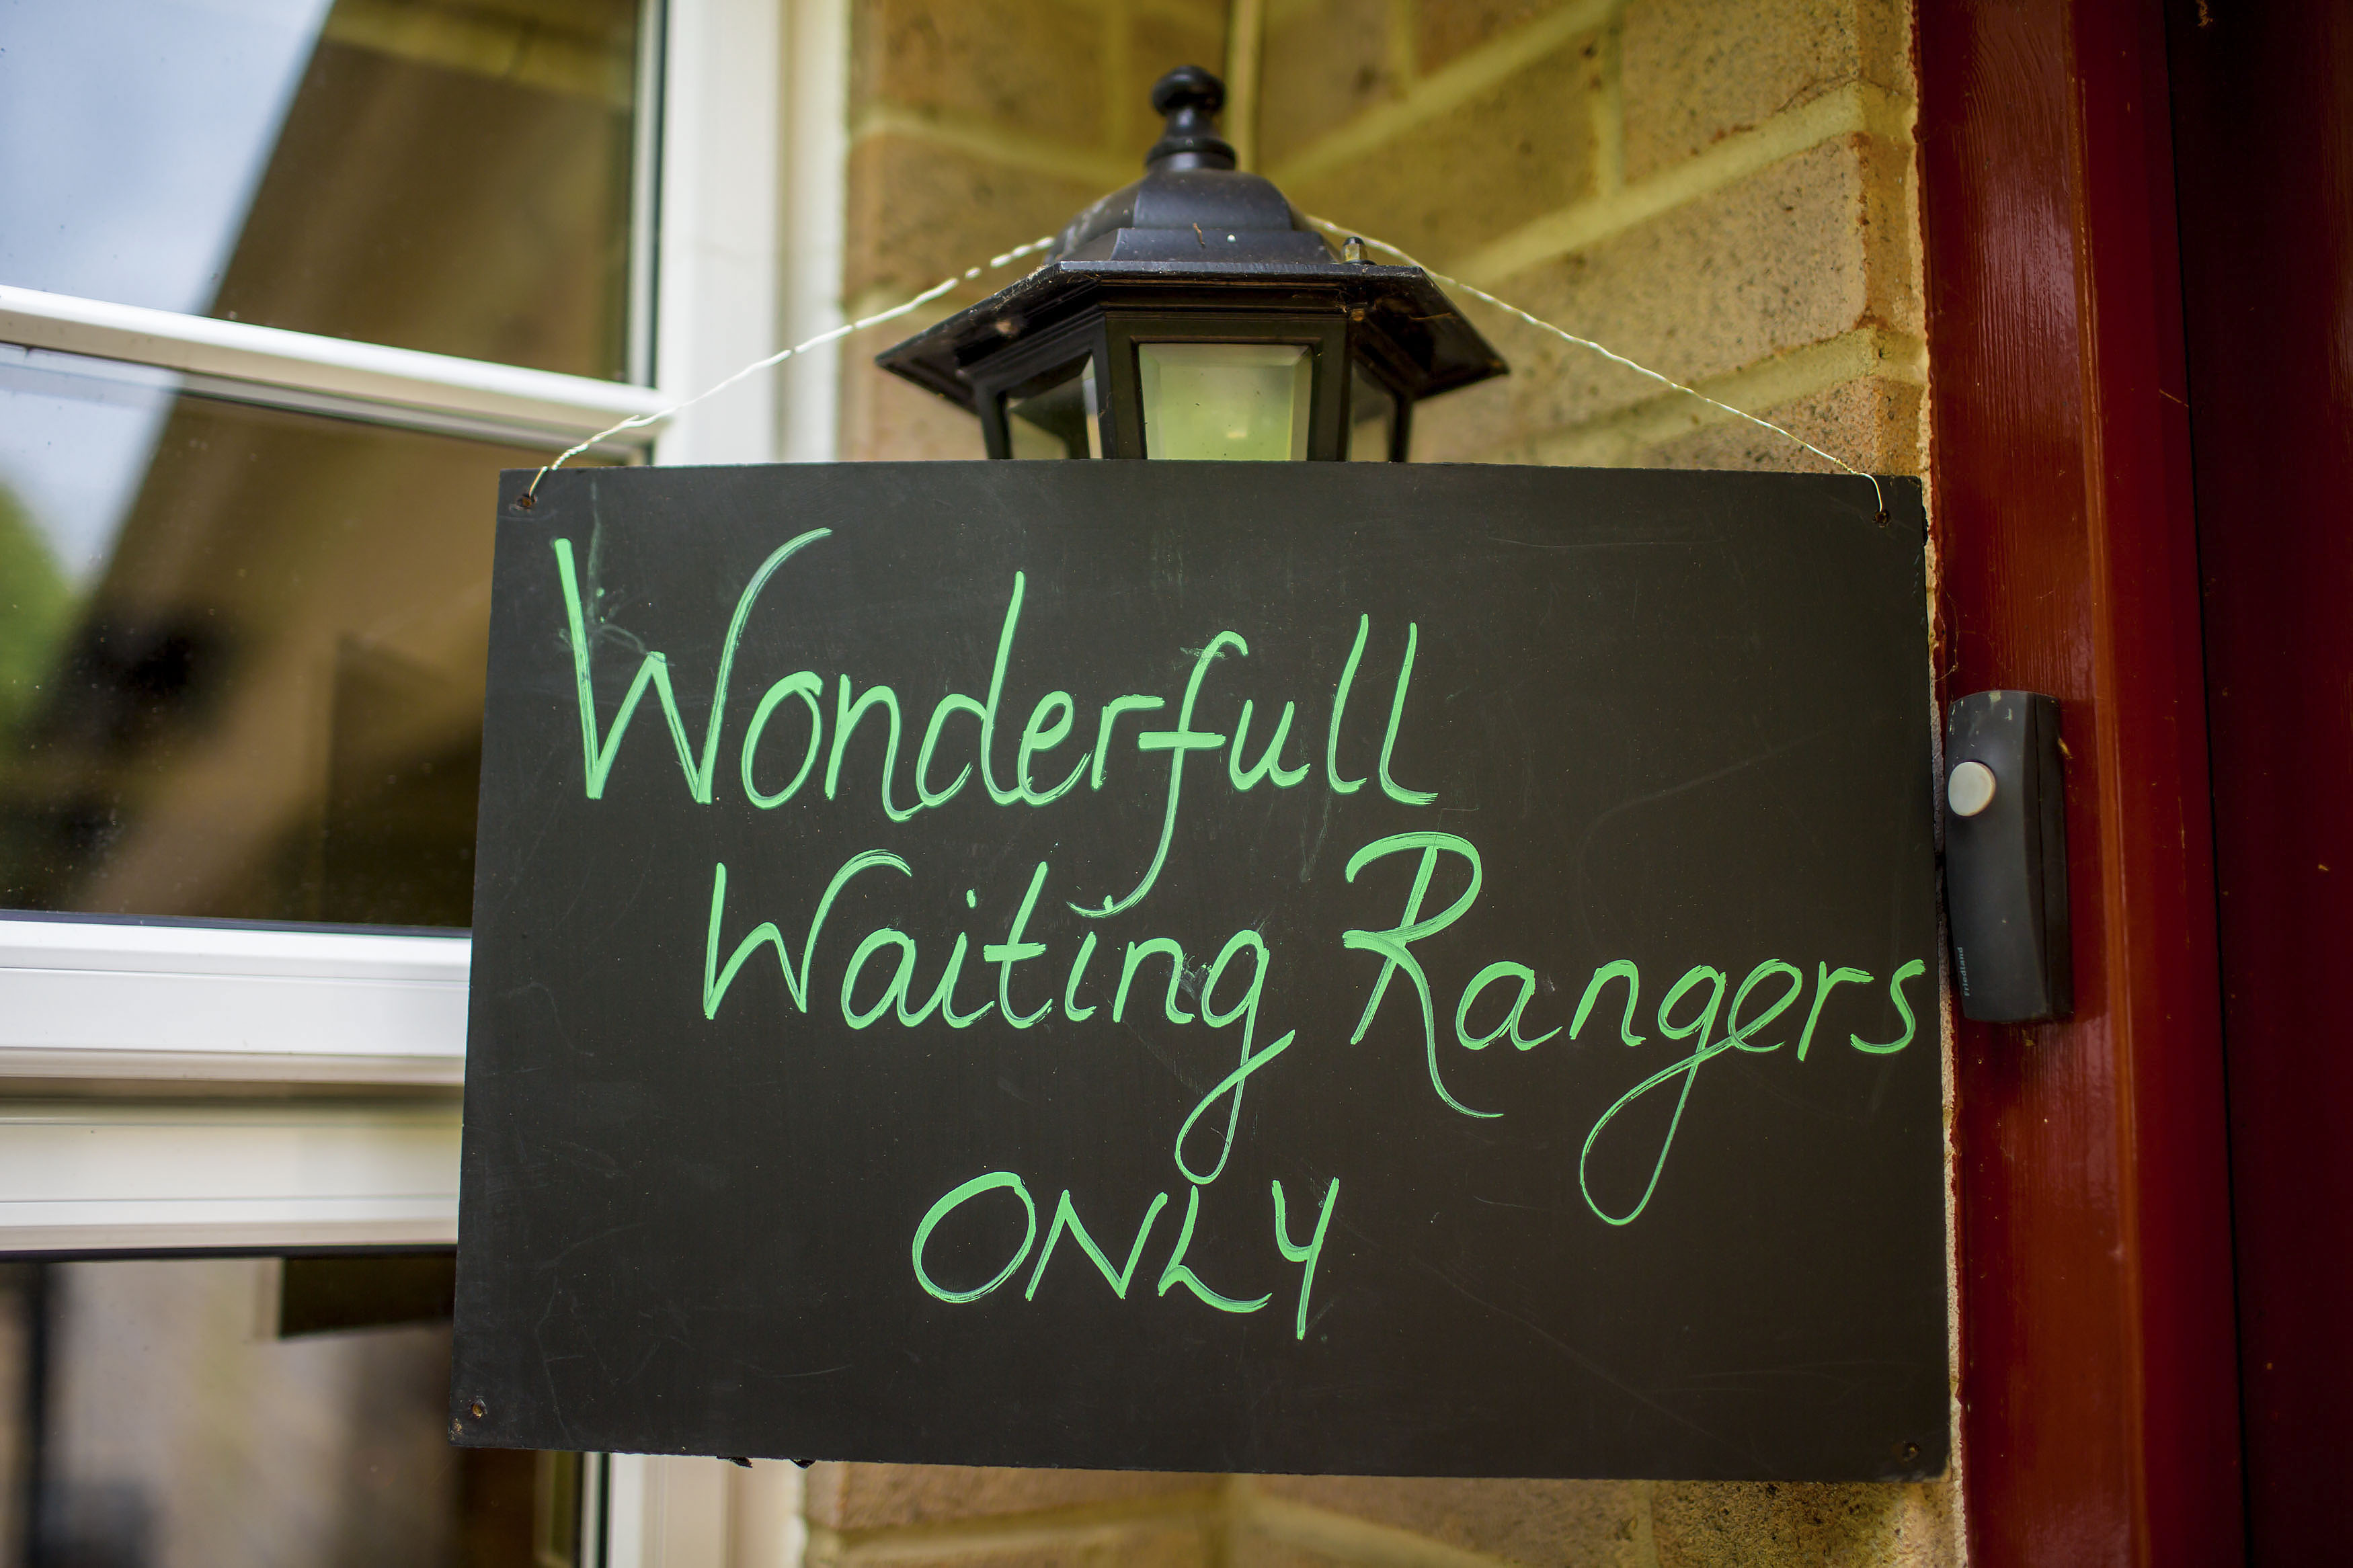 Wonderfull
Waiting Rangers
ONLY
Friedland